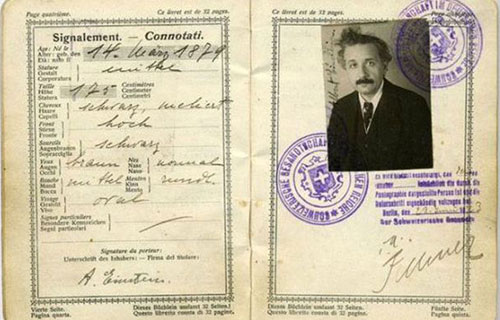 Page quatrième.
Ce livret est de 32 pages.
Signalement. — Connotati.
14. März 1879
Stature
Gestalt
Corporatura
mittel
Taille
Höhe
Statura
175
Centimètres
Centimeter
Centimetri
Cheveux
Haare
Capelli
schwarz, meliert
Front
Stirne
Fronte
hoch
Sourcils
Augenbrauen
Sopracciglia
schwarz
Yeux
Augen
Occhi
braun
Nez
Nase
Naso
normal
Bouche
Mund
Bocca
mittel
Menton
Kinn
Mento
rund
Visage
Gesicht
Viso
oval
Signes particuliers
Besondere Kennzeichen
Segni particolari
Signature du porteur:
Unterschrift des Inhabers: — Firma del titolare:
A. Einstein.
Vierte Seite.
Pagina quarta.
Dieses Büchlein umfasst 32 Seiten.
Questo libretto consta di 32 pagine.
Ce livret est de 32 pages.
Page cinquième.
SCHWEIZERISCHE GESANDTSCHAFT
Photographie dargestellte Person ist und die
Unterschrift eigenhändig vollzogen hat.
Berlin, den
Der Schweizerische Gesandte
Dieses Büchlein umfasst 32 Seiten.
Questo libretto consta di 32 pagine.
Fünfte Seite.
Pagina quinta.